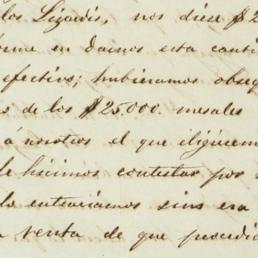 los Lizardis, nos diese $2
me en darnos esta canti
efectivo; hubieramos obseq
s de los $25.000. mesales
á nosotros el que
le hicimos contestar por
la entrariamos sino era
venta de que procedi